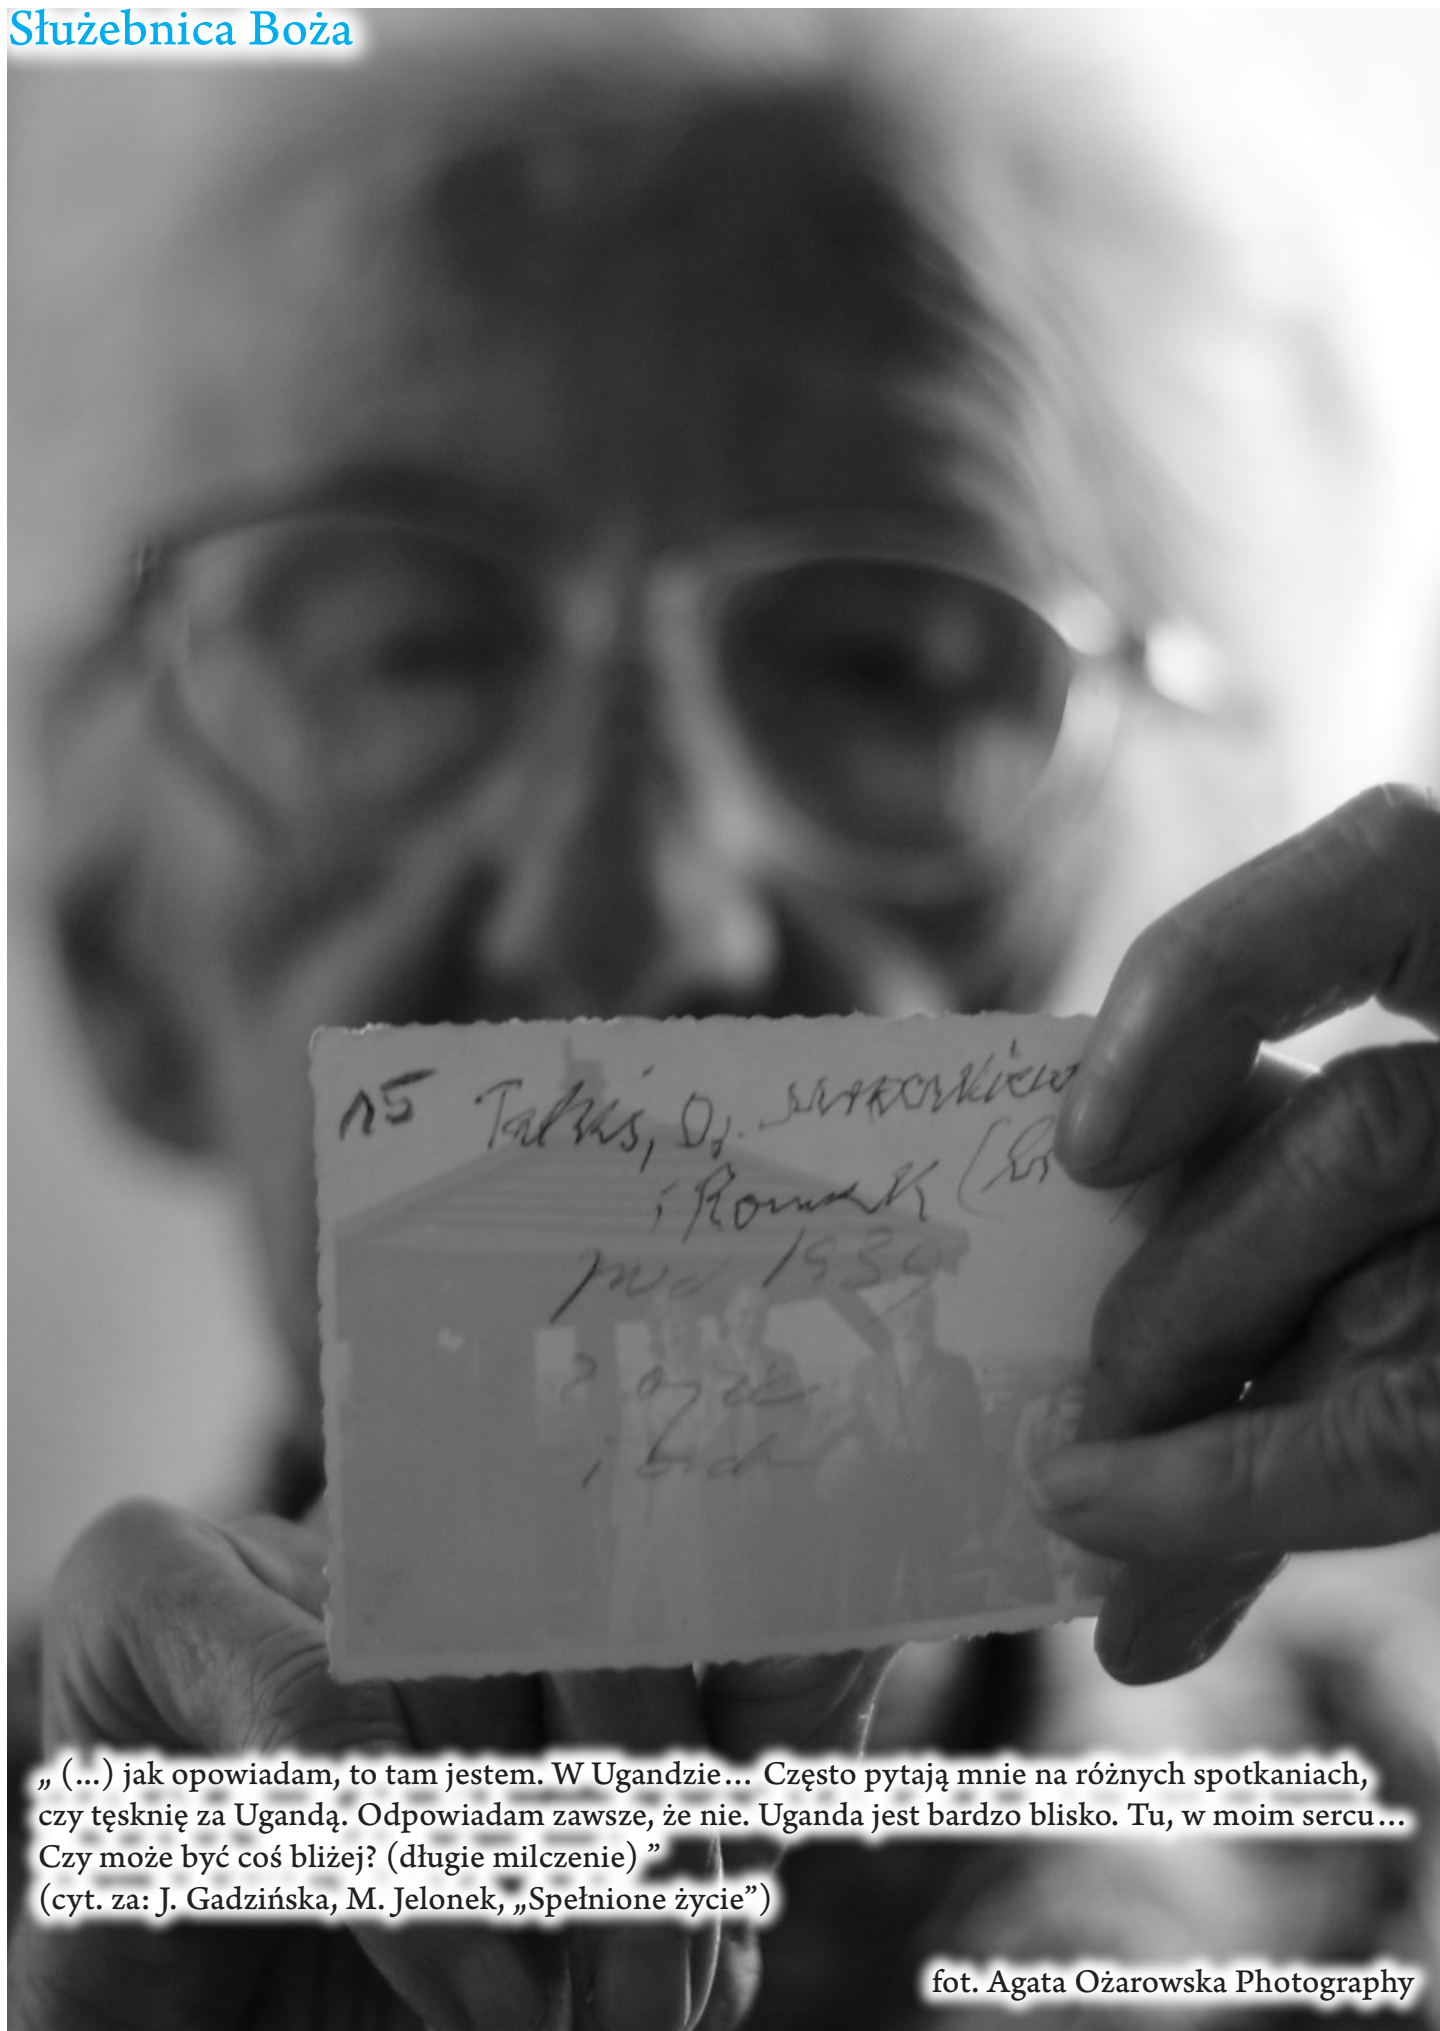 Służebnica Boża
15
i Romek
1939
i
„ (...) jak opowiadam, to tam jestem. W Ugandzie… Często pytają mnie na różnych spotkaniach,
czy tęsknię za Ugandą. Odpowiadam zawsze, że nie. Uganda jest bardzo blisko. Tu, w moim sercu…
Czy może być coś bliżej? (długie milczenie) ”
(cyt. za: J. Gadzińska, M. Jelonek, „Spełnione życie”)
fot. Agata Ożarowska Photography